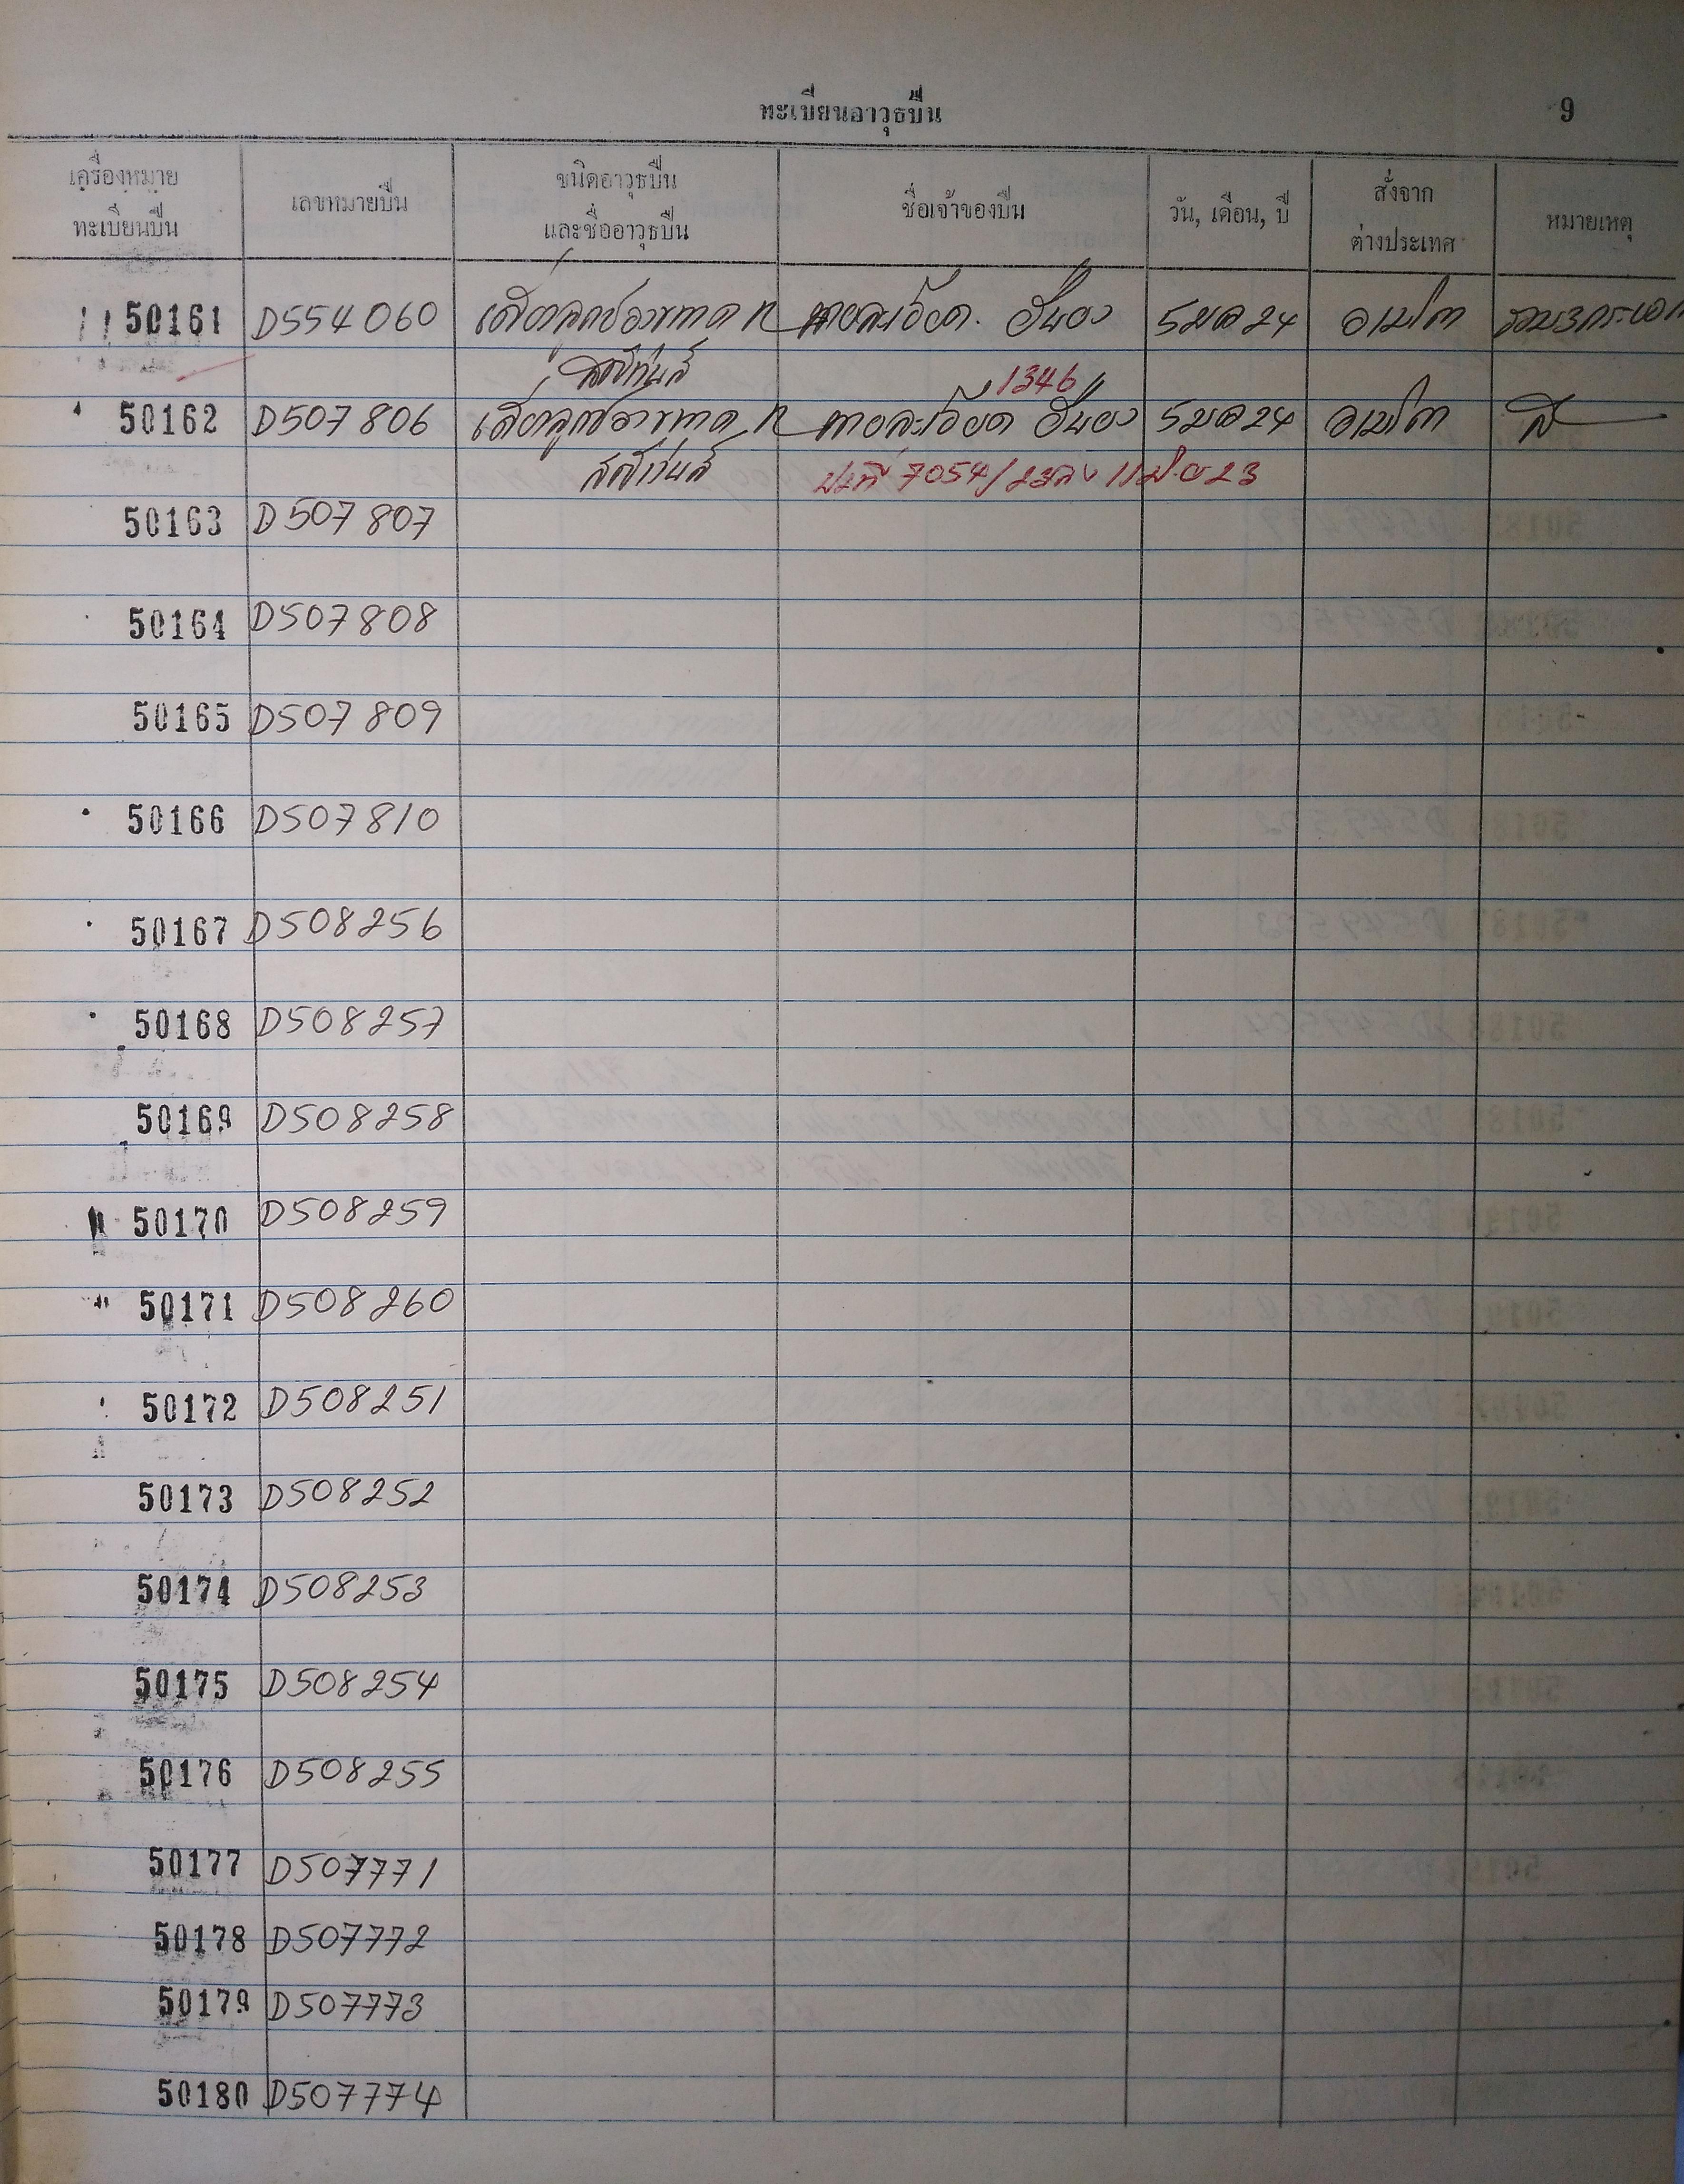 ทะเบียนอาวุธปืน 9
เครื่องหมาย
ทะเบียนปืน
เลขหมายปืน
ชนิดอาวุธปืน
และชื่ออาวุธปืน
ชื่อเจ้าของปืน
วัน, เดือน, ปี
สั่งจาก
ต่างประเทศ
หมายเหตุ
50161 D554060 นายละเอียด 5 มค 24
1346
50162 D507806 นายละเอียด 5 มค 24
7054/ 23
50163 D507807
50164 D507808
50165 D507809
50166 D507810
50167 D508256
50168 D508257
50169 D508258
50170 D508259
50171 D508260
50172 D508251
50173 D508252
50174 D508253
50175 D508254
50176 D508255
50177 D507771
50178 D507772
50179 D507773
50180 D507774